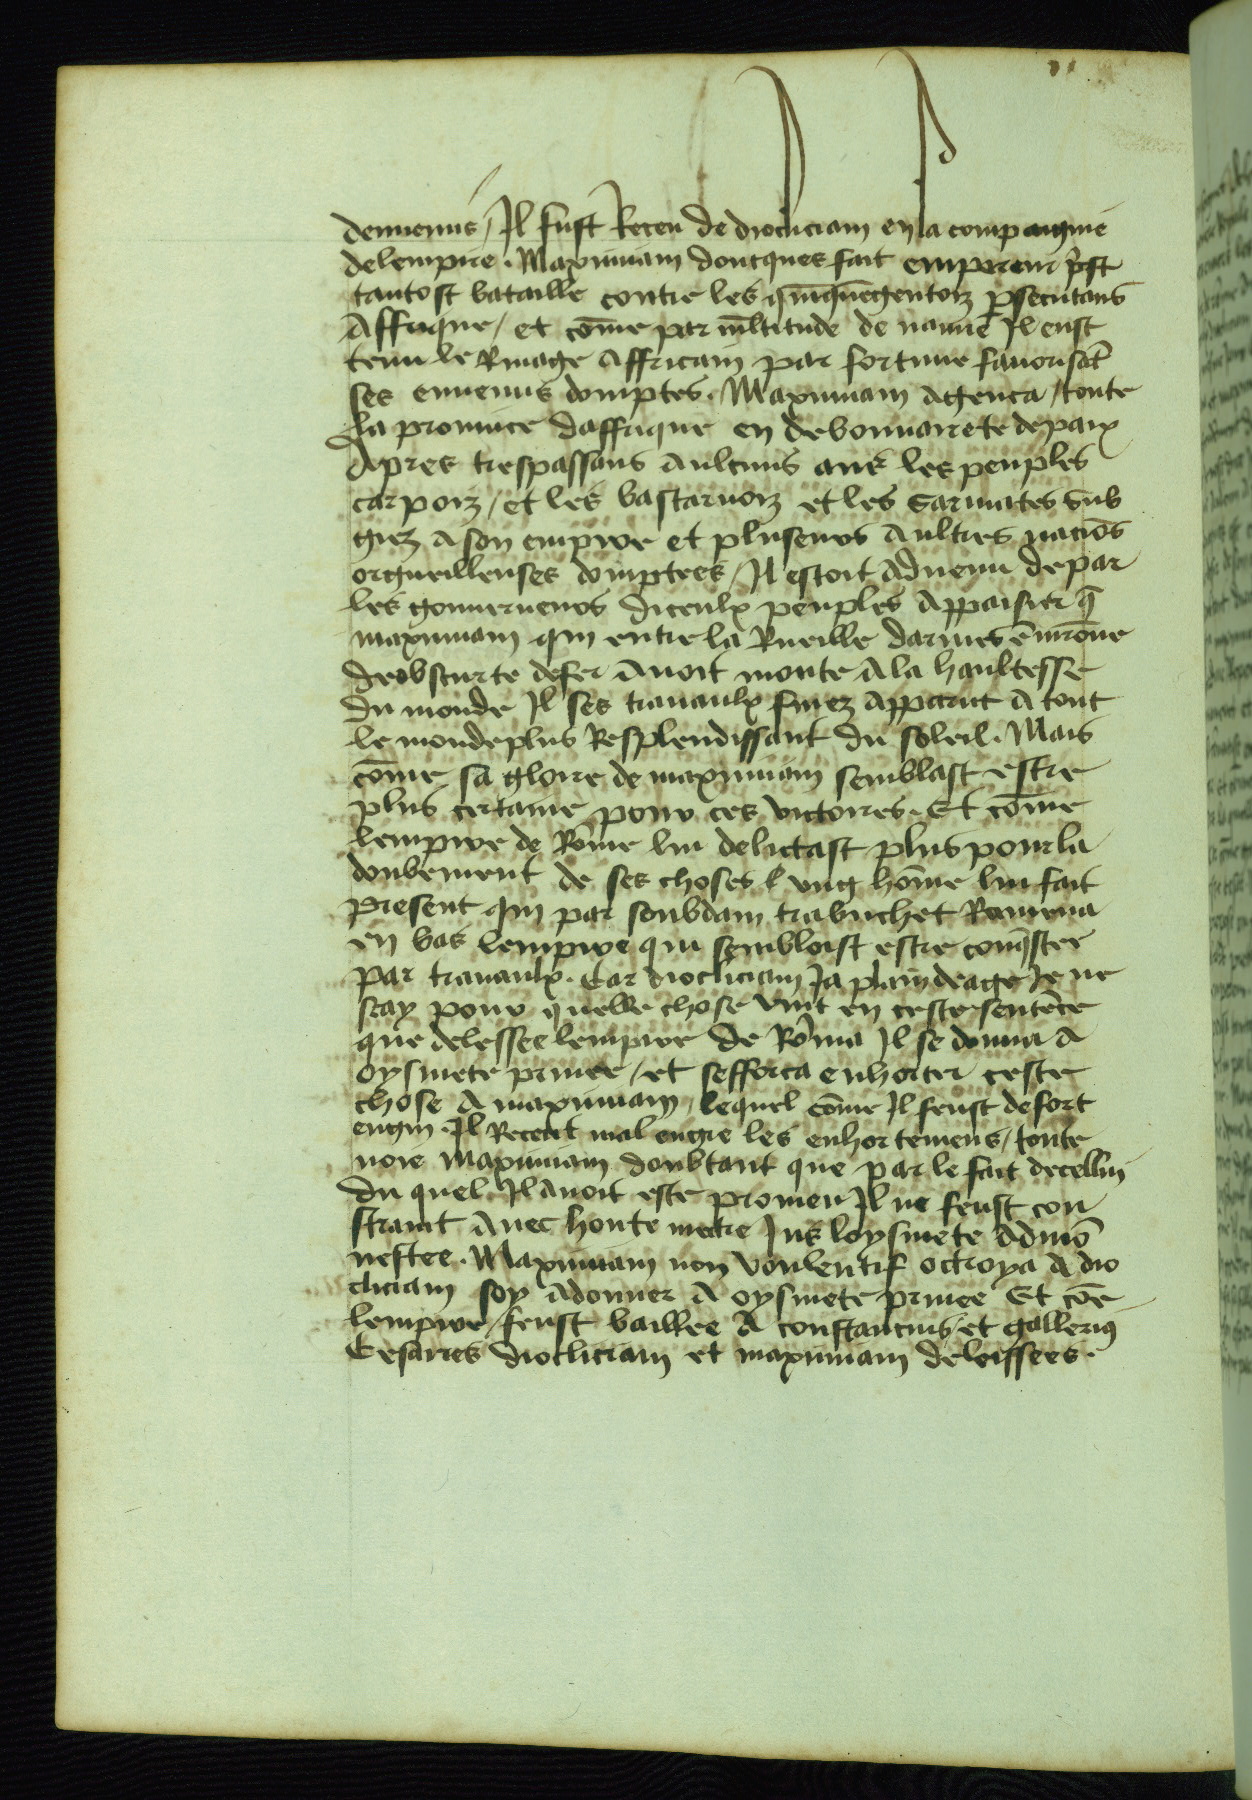 dennemis / Il fust Receu de diocliciam en la compaignie
delempire . Maximiam doncques fait empereur p̄st
tantost bataille contre les quīquegentoiz ꝑsecutans
Affrique / et com̄e par ml̄titude de nauie Il eust
tenu le Riuage Affricain par fortune fauorisāt
ses ennemis domptes . Maximiam Agenca / toute
la prouince daffrique en debonnairete de paix
Apres trespassans Aulcuns ans les peuples
carpoiz / et les bastarnoiz et les Sarmates sub
giez A son empire et pluseurs Aultres naciōs
orgueilleuses domptees / Il estoit Aduenu de par
les gouuerneurs diceulx peuples Appaisier q̄
maximiam qui entre la Rueille darmes ēuirōne
de obscurte de fer Auoit monte A la haultesse
du monde Il ses trauaulx finez Apparut A tout
le monde plus Resplendissant du soleil . Mais
com̄e sa gloire de maximiam semblast estre
plus certaine pour ces victoires . Et com̄e
lempire de Rōme lui delictast plus pour la
doubement de ses choses / vng hom̄e lui fait
present qui par soubdain trabuchet Ramena
en bas lempire qui sembloist estre conq̄stee
par trauaulx . Car diocliciam Ja plain deage Je ne
scay pour quelle chose vint en ceste sentēce
que delessee lempire de Rōma Il se donna A
oysiuete priuee / et sefforca enhorter ceste
chose A maximiam / lequel com̄e Il feust de fort
engin . Il Receut mal engre les enhortemens / toute
uoie Maximiam doubtant que par le fait decellui
du quel Il auoit este promeu Il ne feust con
straint Auec honte mectre Jus loysiuete Admō
nestee . Maximiam non voulentif octroya A dio
cliciam soy Adonner A oysiuete priuee Et cōe
lempire / feust baillee A constancius / et galleriꝰ
Cesaires diocliciam et maximiam deloissees .